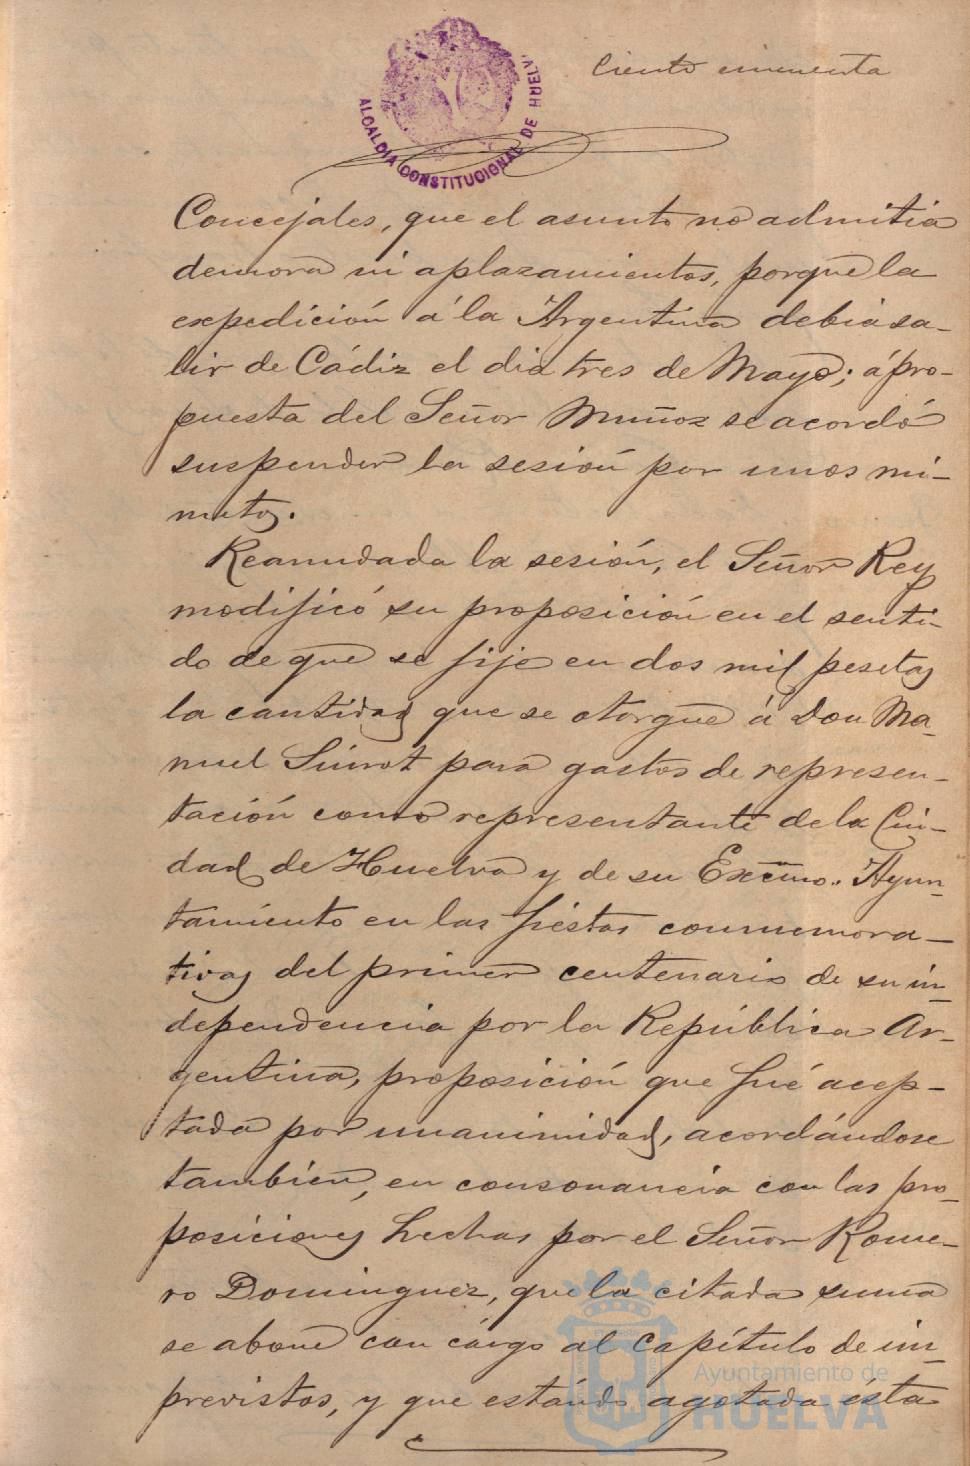 Ciento cincuenta
ALCALDIA CONSTITUCIONAL DE HUELV
Concejales, que el asunto no admitia
demora ni aplazamientos, porque la
expedición á la Argentina debia sa-
lir de Cádiz el dia tres de Mayo; á pro-
puesta del Señor Muñoz se acordó
suspender la sesión por unos mi-
nutos.
Reanudada la sesión, el Señor Rey
modificó su proposición en el senti-
do de que se fije en dos mil pesetas
la cantidad que se otorgue á Don Ma-
nuel Siurot para gastos de represen-
tación como representante de la Ciu-
dad de Huelva y de su Excmo. Ayun-
tamiento en las fiestas conmemora-
tivas del primer centenario de su in-
dependencia por la República Ar-
gentina, proposición que fué acep-
tada por unanimidad, acordándose
también, en consonancia con las pro-
posiciones hechas por el Señor Rome-
ro Dominguez, que la citada suma
se abone con cárgo al Capítulo de im-
previstos, y que estándo agotada ésta
Ayuntamiento de
HUELVA